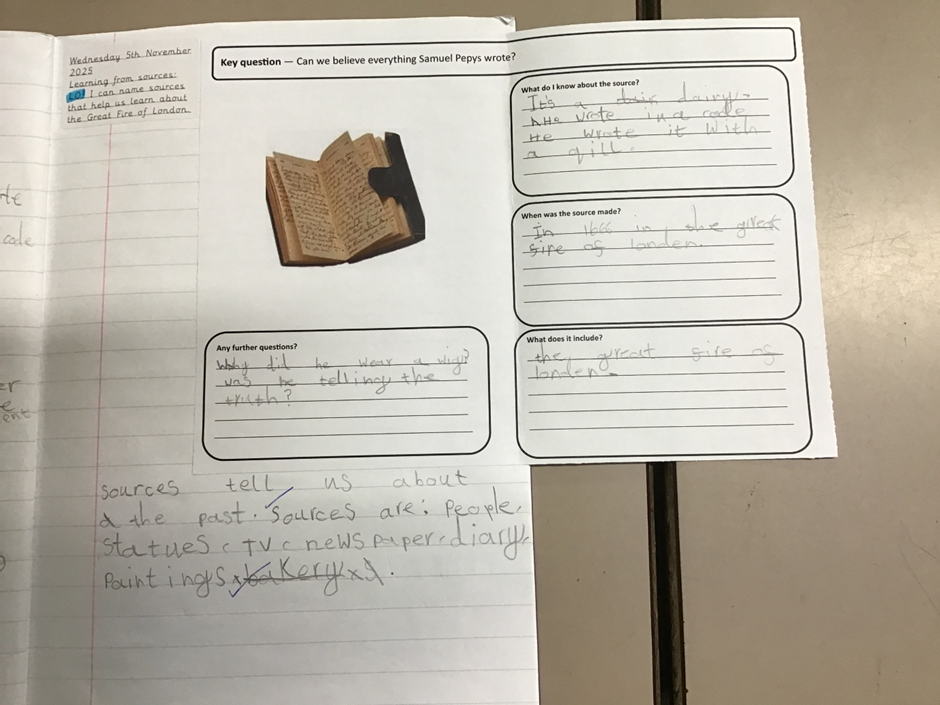 Wednesday 5th November
2025
Learning from sources:
LO: I can name sources
that help us learn about
the Great Fire of London.
Key question — Can we believe everything Samuel Pepys wrote?
What do I know about the source?
It's a dairy.
He wrote in a code
He wrote it with
a qill.
When was the source made?
In 1666 in the great
fire of londen.
Any further questions?
Why did he wear a wig?
was he telling the
truth?
What does it include?
the great fire of
londen.
code
sources tell us about
the past. Sources are: People,
statues, TV, news paper, diary,
Paintings, bakery